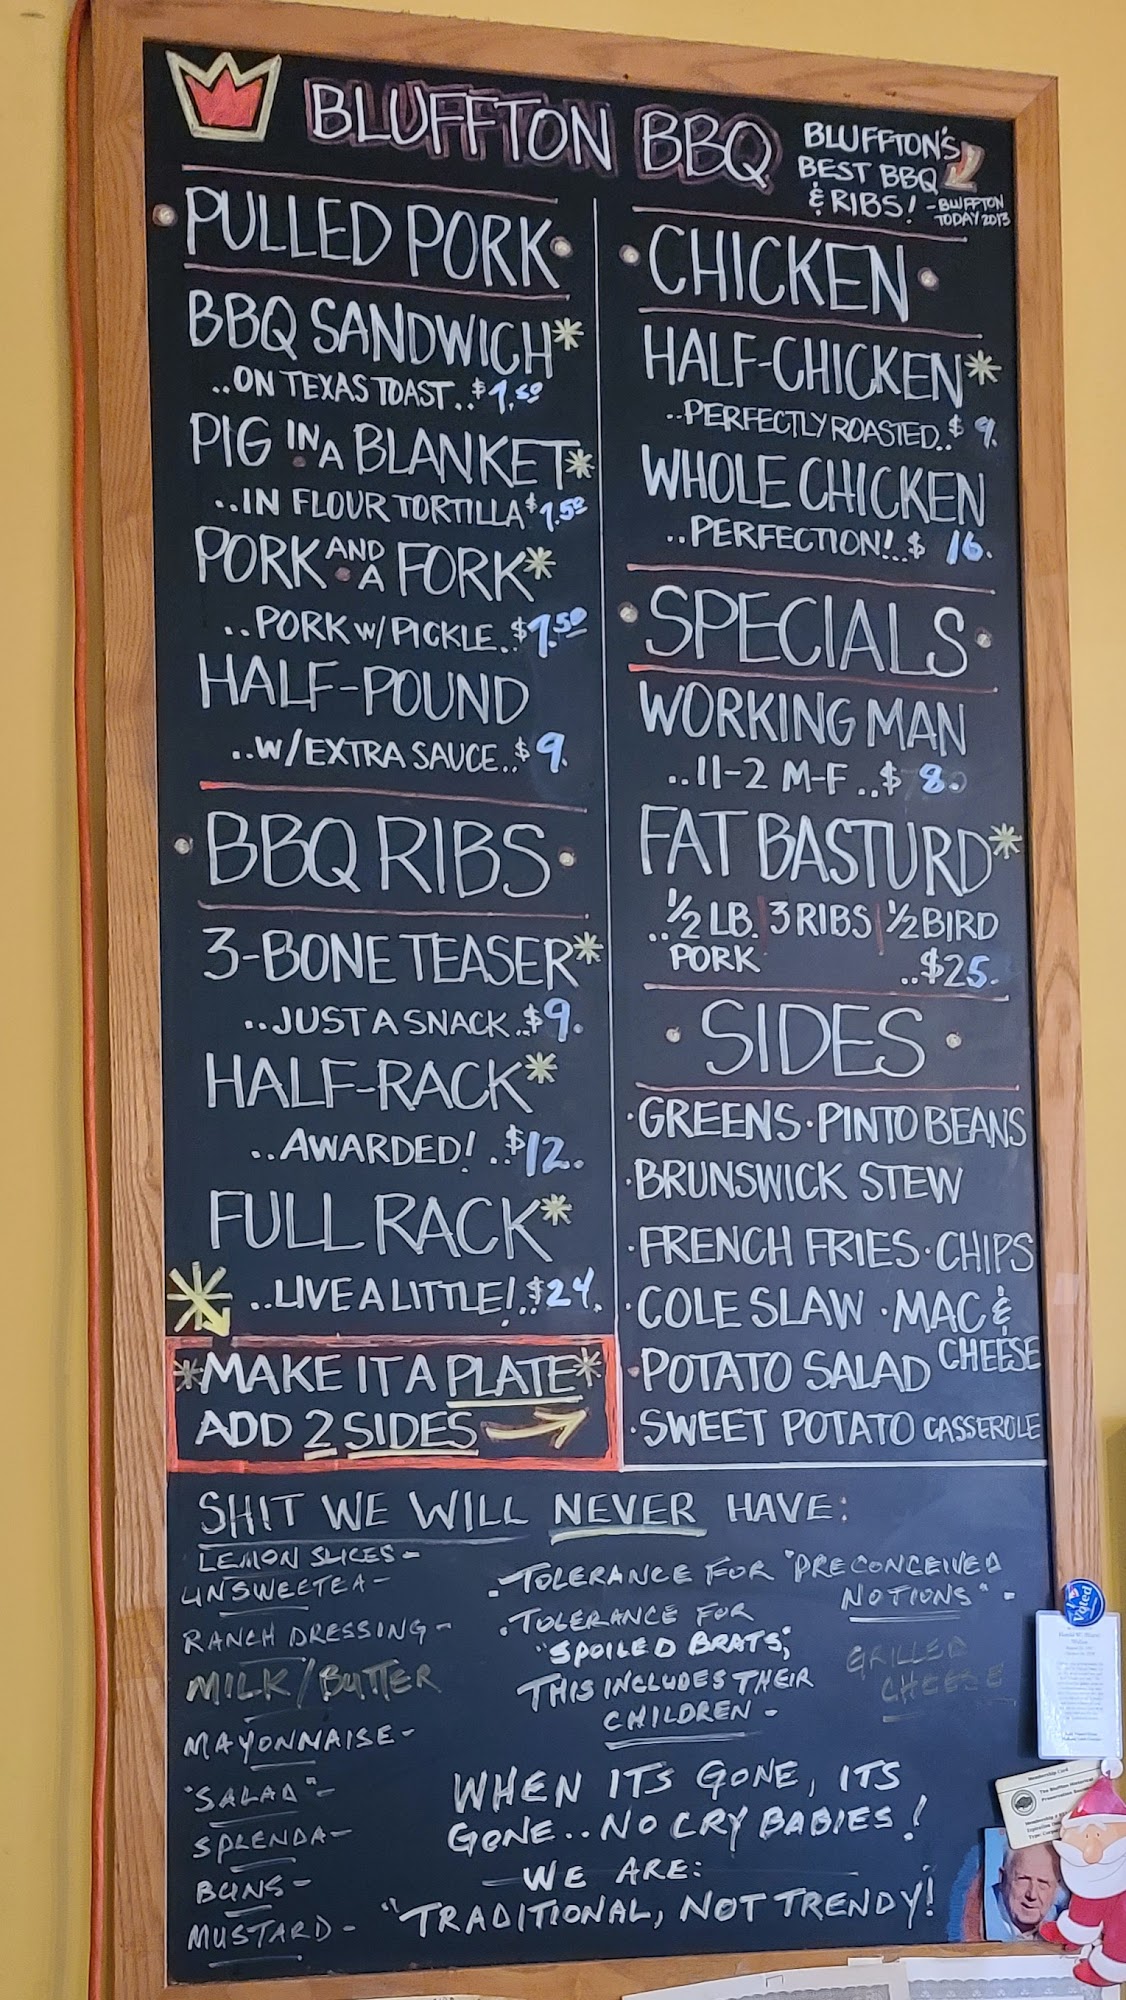 BLUFFTON BBQ
BLUFFTON'S
BEST BBQ
& RIBS! -BLUFFTON
TODAY 2013
PULLED PORK
BBQ SANDWICH*
..ON TEXAS TOAST..$7.50
PIG IN A BLANKET*
..IN FLOUR TORTILLA $7.50
PORK AND A FORK*
..PORK W/PICKLE..$7.50
HALF-POUND
..W/EXTRA SAUCE..$9.
BBQ RIBS
3-BONE TEASER*
..JUST A SNACK..$9.
HALF-RACK*
..AWARDED!..$12.
FULL RACK*
..LIVE A LITTLE!..$24.
*MAKE IT A PLATE*
ADD 2 SIDES
CHICKEN
HALF-CHICKEN*
..PERFECTLY ROASTED..$9.
WHOLE CHICKEN
..PERFECTION!..$16.
SPECIALS
WORKING MAN
..11-2 M-F..$8.
FAT BASTURD*
..1/2 LB. | 3 RIBS | 1/2 BIRD
PORK ..$25.
SIDES
·GREENS·PINTO BEANS
·BRUNSWICK STEW
·FRENCH FRIES·CHIPS
·COLE SLAW ·MAC &
CHEESE
·POTATO SALAD
·SWEET POTATO CASSEROLE
SHIT WE WILL NEVER HAVE:
LEMON SLICES-
UNSWEETEA-
RANCH DRESSING-
MILK/BUTTER
MAYONNAISE-
"SALAD"-
SPLENDA-
BUNS-
MUSTARD-
·TOLERANCE FOR "PRECONCEIVED
NOTIONS"-
·TOLERANCE FOR
"SPOILED BRATS",
THIS INCLUDES THEIR
CHILDREN-
GRILLED
CHEESE
WHEN ITS GONE, ITS
GONE..NO CRY BABIES!
WE ARE:
"TRADITIONAL, NOT TRENDY!
I Voted
Membership Card
The Bluffton Historical
Preservation Society